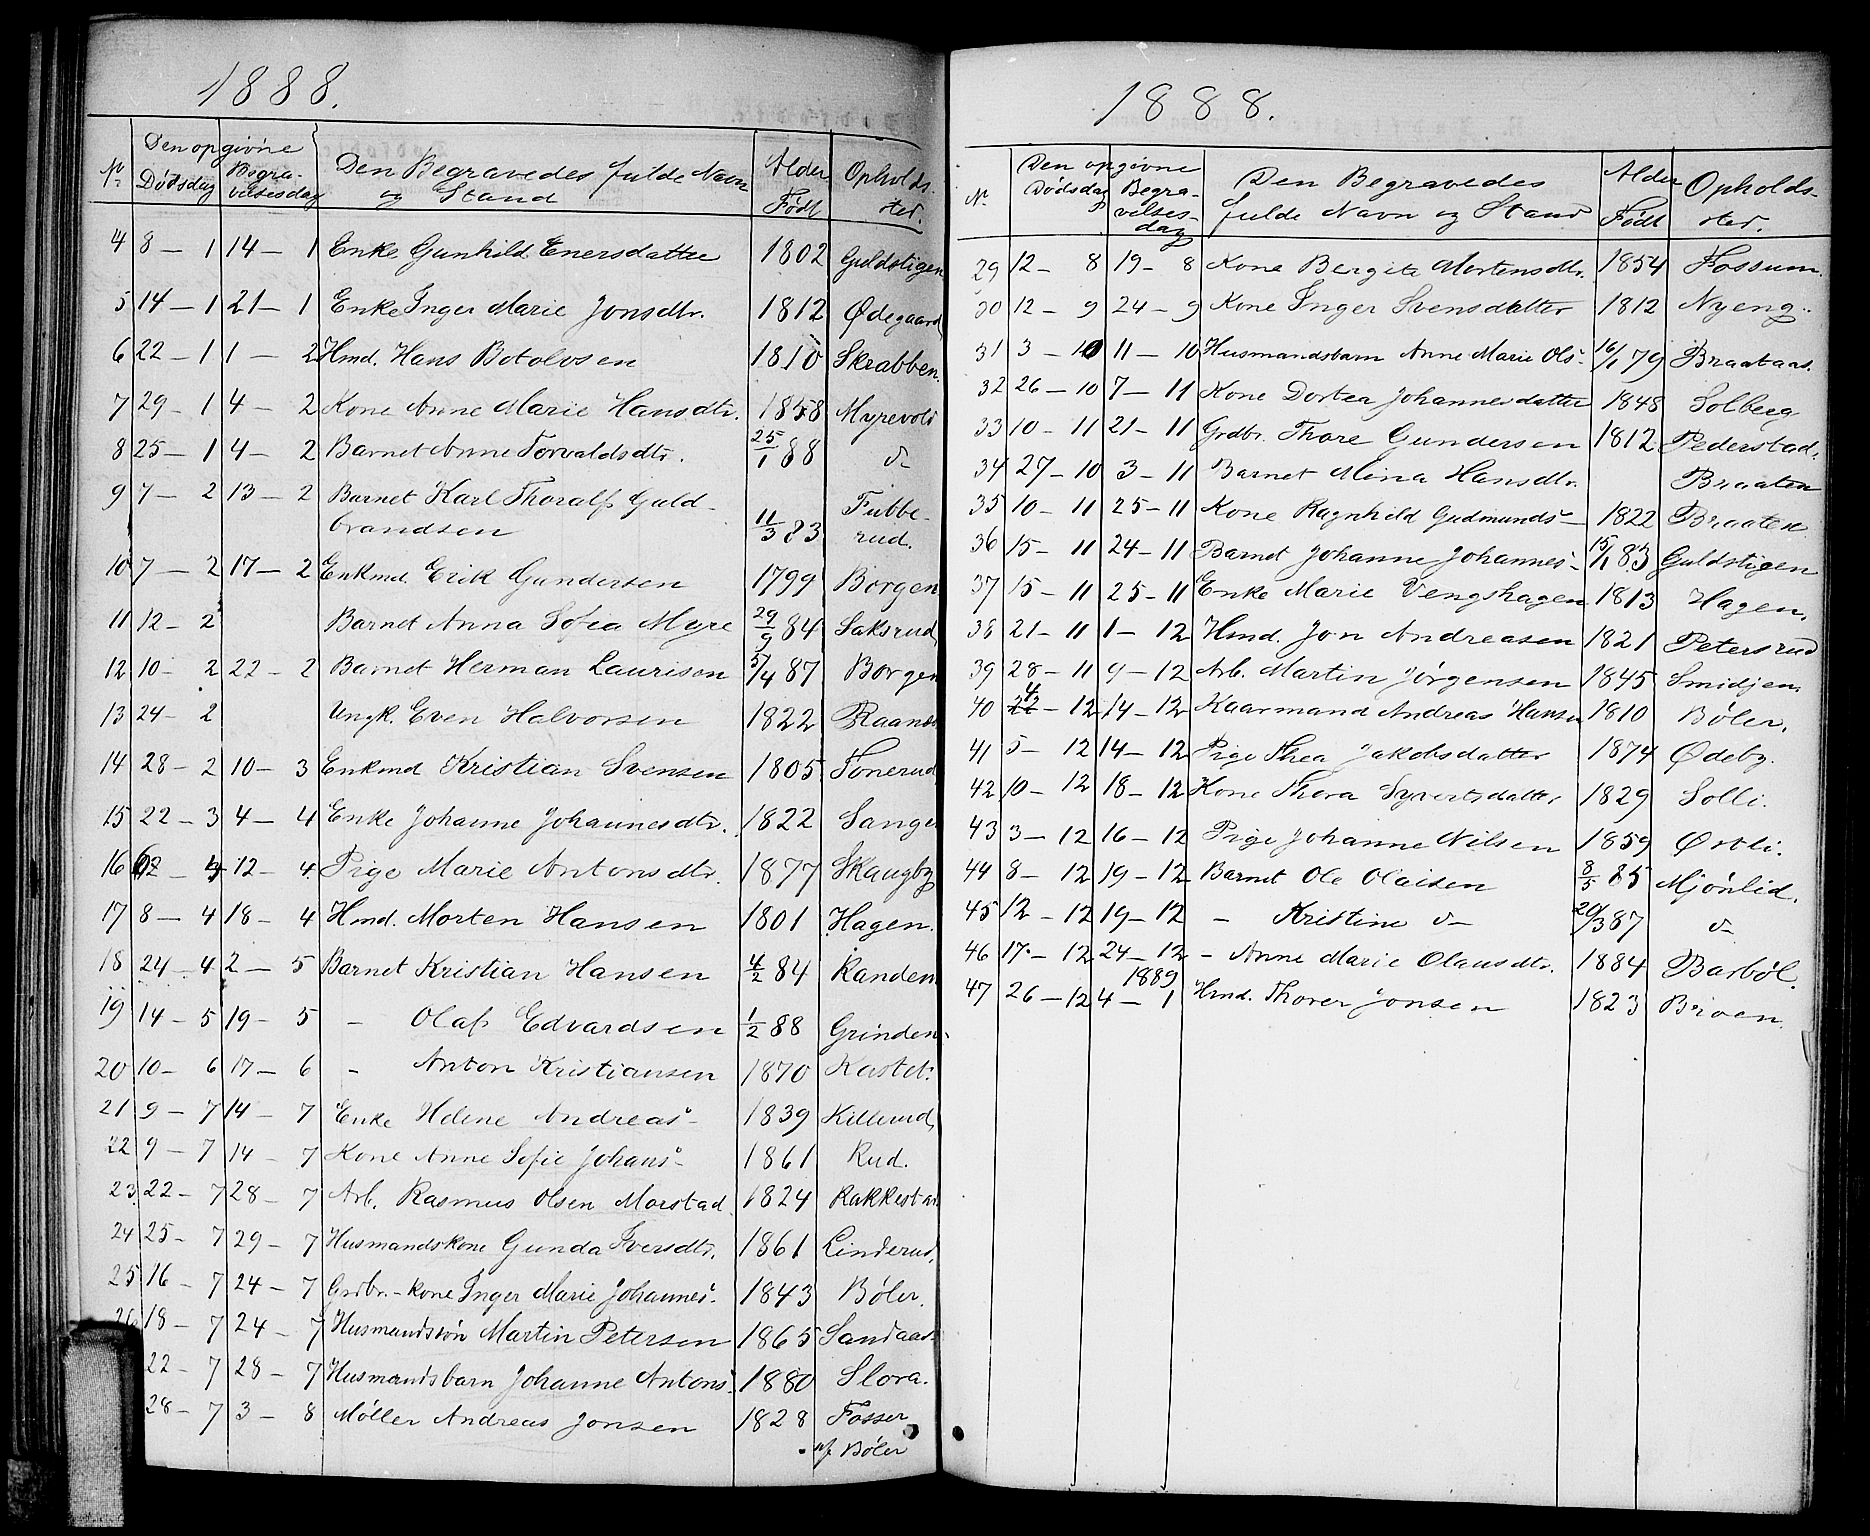 1888.
Den opgivne
№ Dødsdag Begravelsesdag Den Begravedes fulde Navn og Stand Alder Født Opholdssted.
4 8 – 1 14 – 1 Enke Gunhild Enersdatter 1802 Guldstigen
5 14 – 1 21 – 1 Enke Inger Marie Jonsdtr. 1812 Ødegaard
6 22 – 1 1 – 2 Hmd. Hans Botolvsen 1810 Skrabben.
7 29 – 1 4 – 2 Kone Anne Marie Hansdtr. 1858 Myrevold
8 25 – 1 4 – 2 Barnet Anne Torvaldsdtr. 25/1 88 d–
9 7 – 2 13 – 2 Barnet Karl Thoralf Guld-
brandsen 11/3 83 Fubberud.
10 7 – 2 17 – 2 Enkmd. Erik Gundersen 1799 Borgen
11 12 – 2 Barnet Anna Sofia Myre 29/9 84 Saksrud
12 10 – 2 22 – 2 Barnet Herman Laurisen 5/4 87 Borgen
13 24 – 2 Ungk. Even Halvorsen 1822
14 28 – 2 10 – 3 Enkmd Kristian Svensen 1805 Tonerud
15 22 – 3 4 – 4 Enke Johanne Johannesdtr. 1822
16 12 – 4 Pige Marie Antonsdtr. 1877 Skaugby
17 8 – 4 18 – 4 Hmd. Morten Hansen 1801 Hagen.
18 24 – 4 2 – 5 Barnet Kristian Hansen 4/2 84 Randem
19 14 – 5 19 – 5 – Olaf Edvardsen 1/2 88 Grinden
20 10 – 6 17 – 6 – Anton Kristiansen 1870 Kastet.
21 9 – 7 14 – 7 Enke Helene Andreas- 1839 Killerud
22 9 – 7 14 – 7 Kone Anne Sofie Johans- 1861 Rud.
23 22 – 7 28 – 7 Arb. Rasmus Olsen Morstad 1824 Rakkestad
24 25 – 7 29 – 7 Husmandskone Gunda Iversdtr. 1861 Linderud
25 16 – 7 24 – 7 Grdbr.-kone Inger Marie Johannes- 1843 Bøler.
26 18 – 7 24 – 7 Husmandssøn Martin Petersen 1865 Sandaas
22 – 7 28 – 7 Husmandsbarn Johanne Antons- 1880 Slora.
28 – 7 3 – 8 Møller Andreas Jonsen 1828 Fosser
af Bøler
1888.
Den opgivne
№ Dødsdag Begravelsesdag Den Begravedes fulde Navn og Stand Alder Født Opholdssted.
29 12 – 8 19 – 8 Kone Bergite Mortensdtr. 1854 Fossum.
30 12 – 9 24 – 9 Kone Inger Svensdatter 1812 Nyeng.
31 3 – 10 11 – 10 Husmandsbarn Anne Marie Ols- 16/1 79 Braataas.
32 26 – 10 7 – 11 Kone Dortea Johannesdatter 1848 Solberg
33 10 – 11 21 – 11 Grdbr. Thore Gundersen 1812 Pederstad.
34 27 – 10 3 – 11 Barnet Mina Hansdtr. Braaten
35 10 – 11 25 – 11 Kone Ragnhild Gudmunds- 1822 Braaten
36 15 – 11 24 – 11 Barnet Johanne Johannes- 15/1 83 Guldstigen
37 15 – 11 25 – 11 Enke Marie Vengshagen 1813 Hagen.
38 21 – 11 1 – 12 Hmd. Jon Andreasen 1821 Petersrud
39 28 – 11 9 – 12 Arb. Martin Jørgensen 1845 Smidjen.
40 4 – 12 14 – 12 Kaarmand Andreas Hansen 1810 Bøler.
41 5 – 12 14 – 12 Pige Thea Jakobsdatter 1874 Ødeby.
42 10 – 12 18 – 12 Kone Thora Syvertsdatter 1829 Solli.
43 3 – 12 16 – 12 Pige Johanne Nilsen 1859 Østli.
44 8 – 12 19 – 12 Barnet Ole Olaisen 8/5 85 Mjönlid.
45 12 – 12 19 – 12 – Kristine d– 20/3 87 d–
46 17 – 12 24 – 12 – Anne Marie Olausdtr. 1884 Barbøl.
47 26 – 12 4 – 1 1889 Hmd. Thorer Jonsen 1823 Broen.